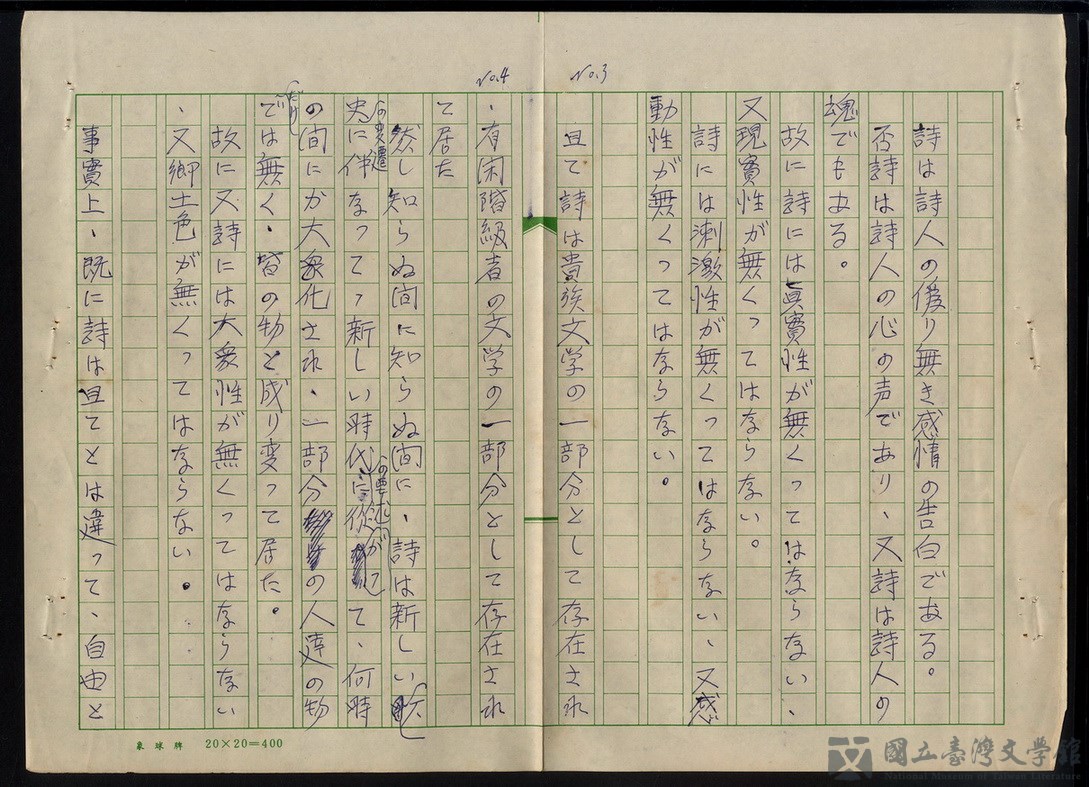 No.3
詩は詩人の偽り無き感情の告白である。
否詩は詩人の心の声であり、又詩は詩人の
魂でもある。
故に詩には眞實性が無くってはならない、
又現實性が無くってはならない。
詩には刺激性が無くってはならない、又感
動性が無くってはならない。
且て詩は貴族文学の一部分として存在され
No.4
、有閑階級者の文学の一部分として存在され
て居た
然し知らぬ間に知らぬ間に、詩は新しい
史の変遷に伴なってっ新しい時代に従て、何時
の間にか大衆化され、一部分の人達の物
では無く、皆の物と成り変って居た。
故に又詩には大衆性が無くってはならない
、又郷土色が無くってはならない。
事實上、既に詩は且てとは違って、自由と
象球牌 20×20=400
國立臺灣文學館
National Museum of Taiwan Literature